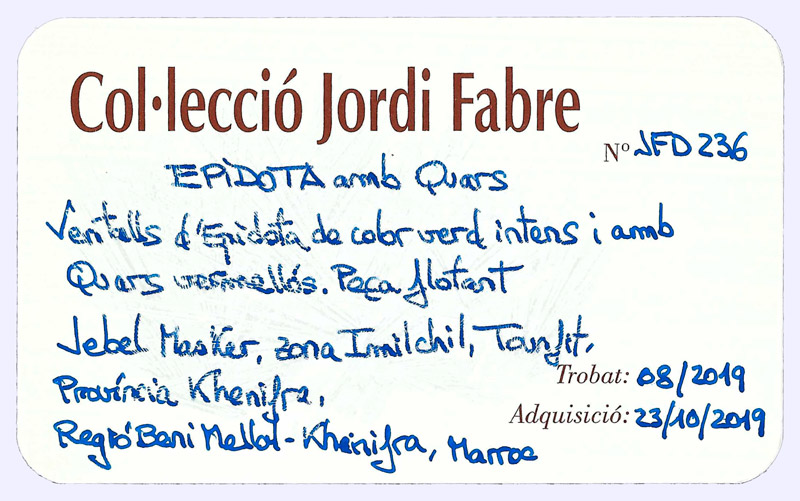 Col·lecció Jordi Fabre
Nº JFD 236
EPIDOTA amb Quars
Ventalls d'Epidota de color verd intens i amb
Quars vermellós. Peça flotant
Jebel Masker, zona Imilchil, Tounfit,
Trobat: 08/2019
Província Khenifra,
Adquisició: 23/10/2019
Regió Beni Mellal-Khenifra, Marroc